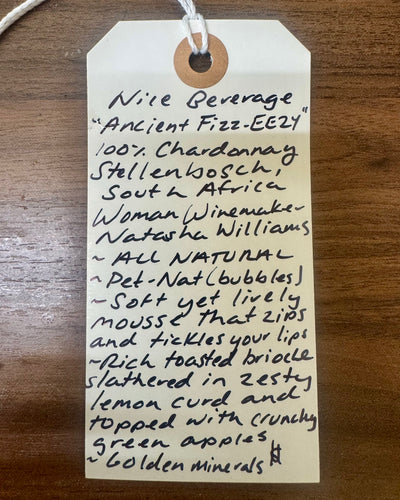 Nice Beverage
"Ancient Fizz-EEZY"
100% Chardonnay
Stellenbosch,
South Africa
Woman Winemaker
Natasha Williams
~ ALL NATURAL
~ Pet-Nat (bubbles)
~ Soft yet lively
mousse that zips
and tickles your lips
~ Rich toasted brioche
slathered in zesty
lemon curd and
topped with crunchy
green apples
~ Golden minerals